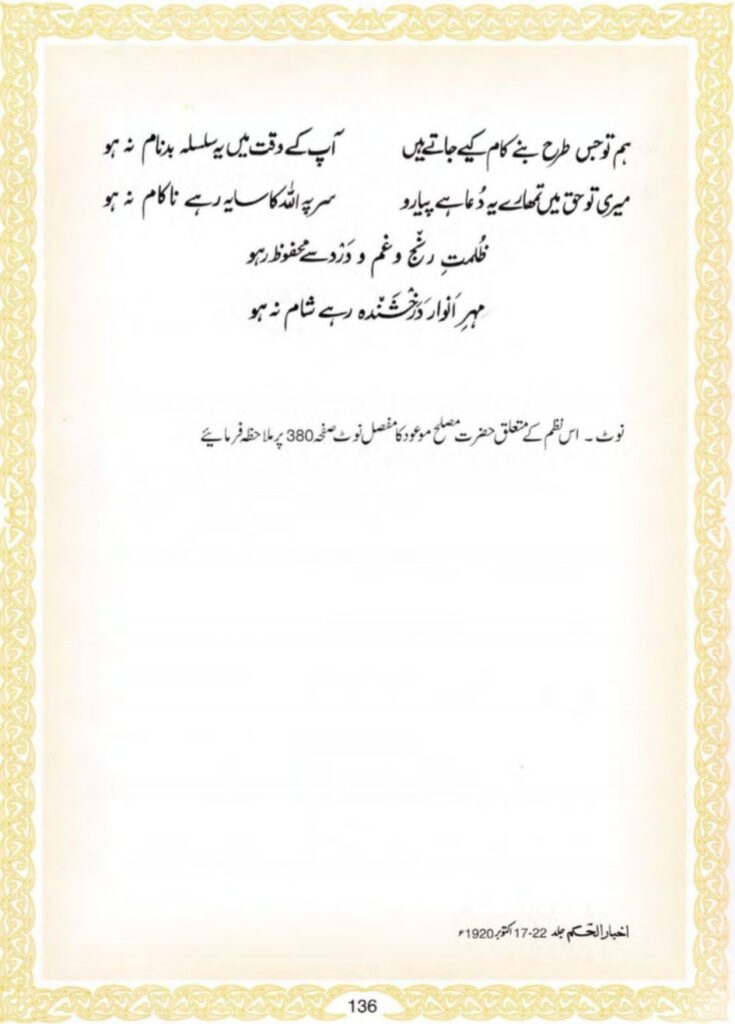 ہم تو جس طرح بنے کام کیے جاتے ہیں آپ کے وقت میں یہ سلسلہ بدنام نہ ہو
میری تو حق میں تمھارے یہ دُعا ہے پیارو سر پہ اللہ کا سایہ رہے ناکام نہ ہو
ظُلمتِ رنج و غم و دَرْد سے محفوظ رہو
مہرِ اَنوار دَرَخْشَنْدہ رہے شام نہ ہو
نوٹ ۔ اس نظم کے متعلق حضرت مصلح موعود کا مفصل نوٹ صفحہ 380 پر ملاحظہ فرمائیے
اخبار الحکم جلد 22-17 اکتوبر 1920ء
136